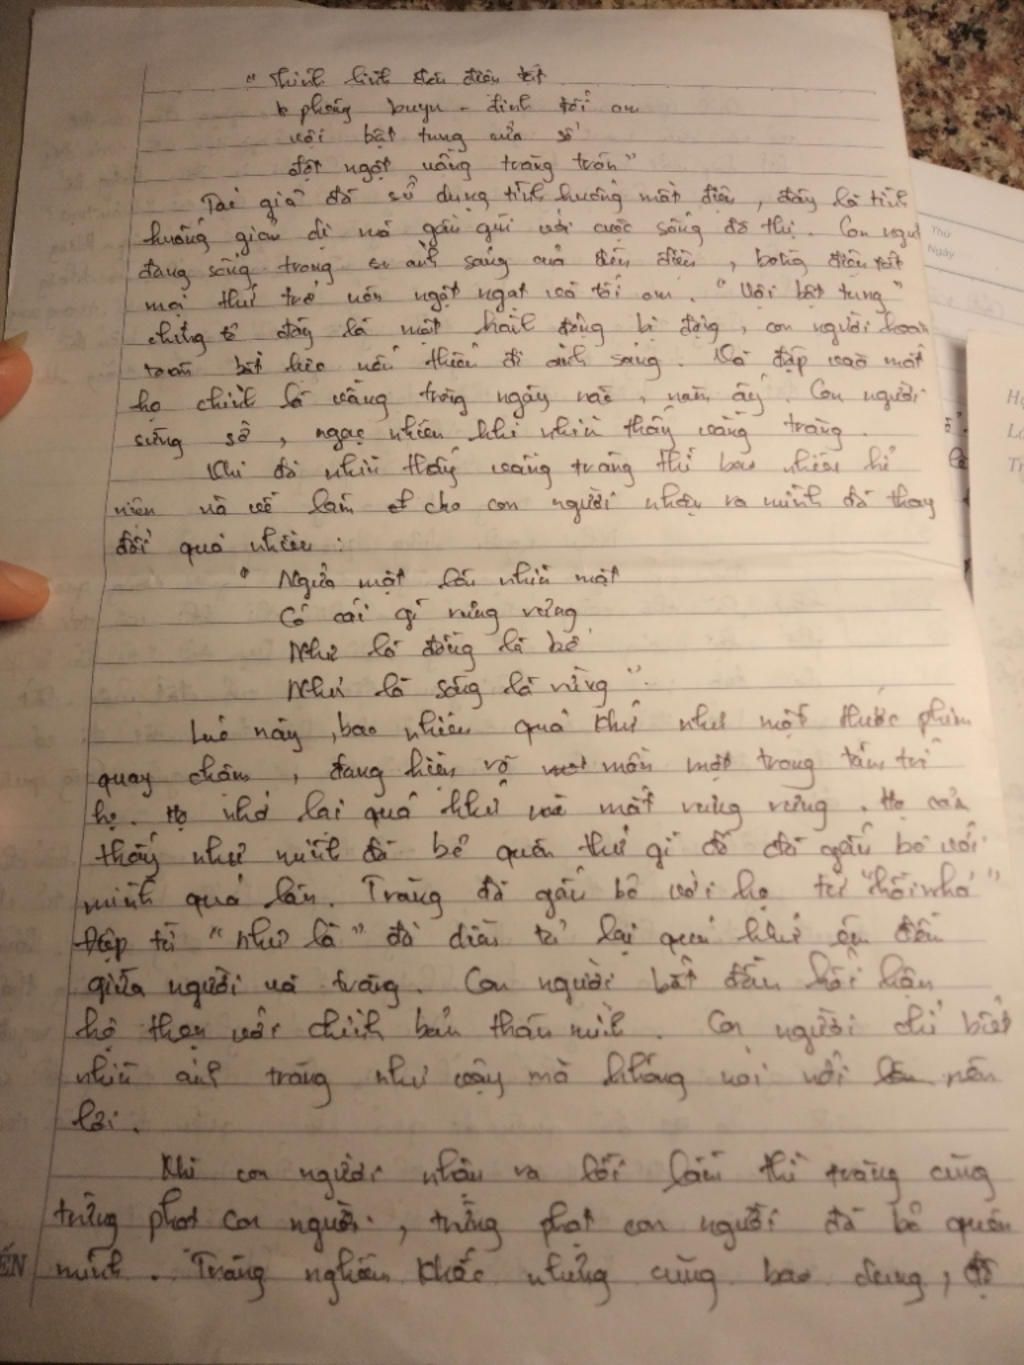 "Thình lình đèn điện tắt
phòng buyn - đinh tối om
vội bật tung cửa sổ
đột ngột vầng trăng tròn"
Tác giả đã sử dụng tình huống mất điện, đây là tình
huống giản dị nó gần gũi với cuộc sống đô thị. Con người
đang sống trong ánh sáng của đèn điện, bỗng điện tắt
mọi thứ trở nên ngột ngạt và tối om. "Vội bật tung"
chứng tỏ đây là một hành động bị động, con người hoàn
toàn bất lực nếu thiếu đi ánh sáng. Và đập vào mắt
họ chính là vầng trăng ngày nào, năm ấy. Con người
sững sờ, ngạc nhiên khi nhìn thấy vầng trăng.
Khi đó nhìn thấy vầng trăng thì bao nhiêu kỉ
niệm nó về làm cho con người nhận ra mình đã thay
đổi quá nhiều:
" Ngửa mặt lên nhìn mặt
Có cái gì rưng rưng
Như là đồng là bể
Như là sông là rừng".
Lúc này, bao nhiêu quá khứ như một thước phim
quay chậm, đang hiện rõ mồn một trong tâm trí
họ. Họ nhớ lại quá khứ mà mắt rưng rưng. Họ cảm
thấy như mình đã bỏ quên thứ gì đó đã gắn bó với
mình quá lâu. Trăng đã gắn bó với họ từ "hồi nhỏ"
Điệp từ "như là" đã diễn tả lại quá khứ êm đềm
giữa người và trăng. Con người bắt đầu hối hận
hổ thẹn với chính bản thân mình. Con người chỉ biết
nhìn ánh trăng như vậy mà không nói nổi nên
lời.
Khi con người nhận ra lỗi lầm thì trăng cũng
trừng phạt con người, trừng phạt con người đã bỏ quên
mình. Trăng nghiêm khắc nhưng cũng bao dung, độ
Thứ
Ngày
ẾN